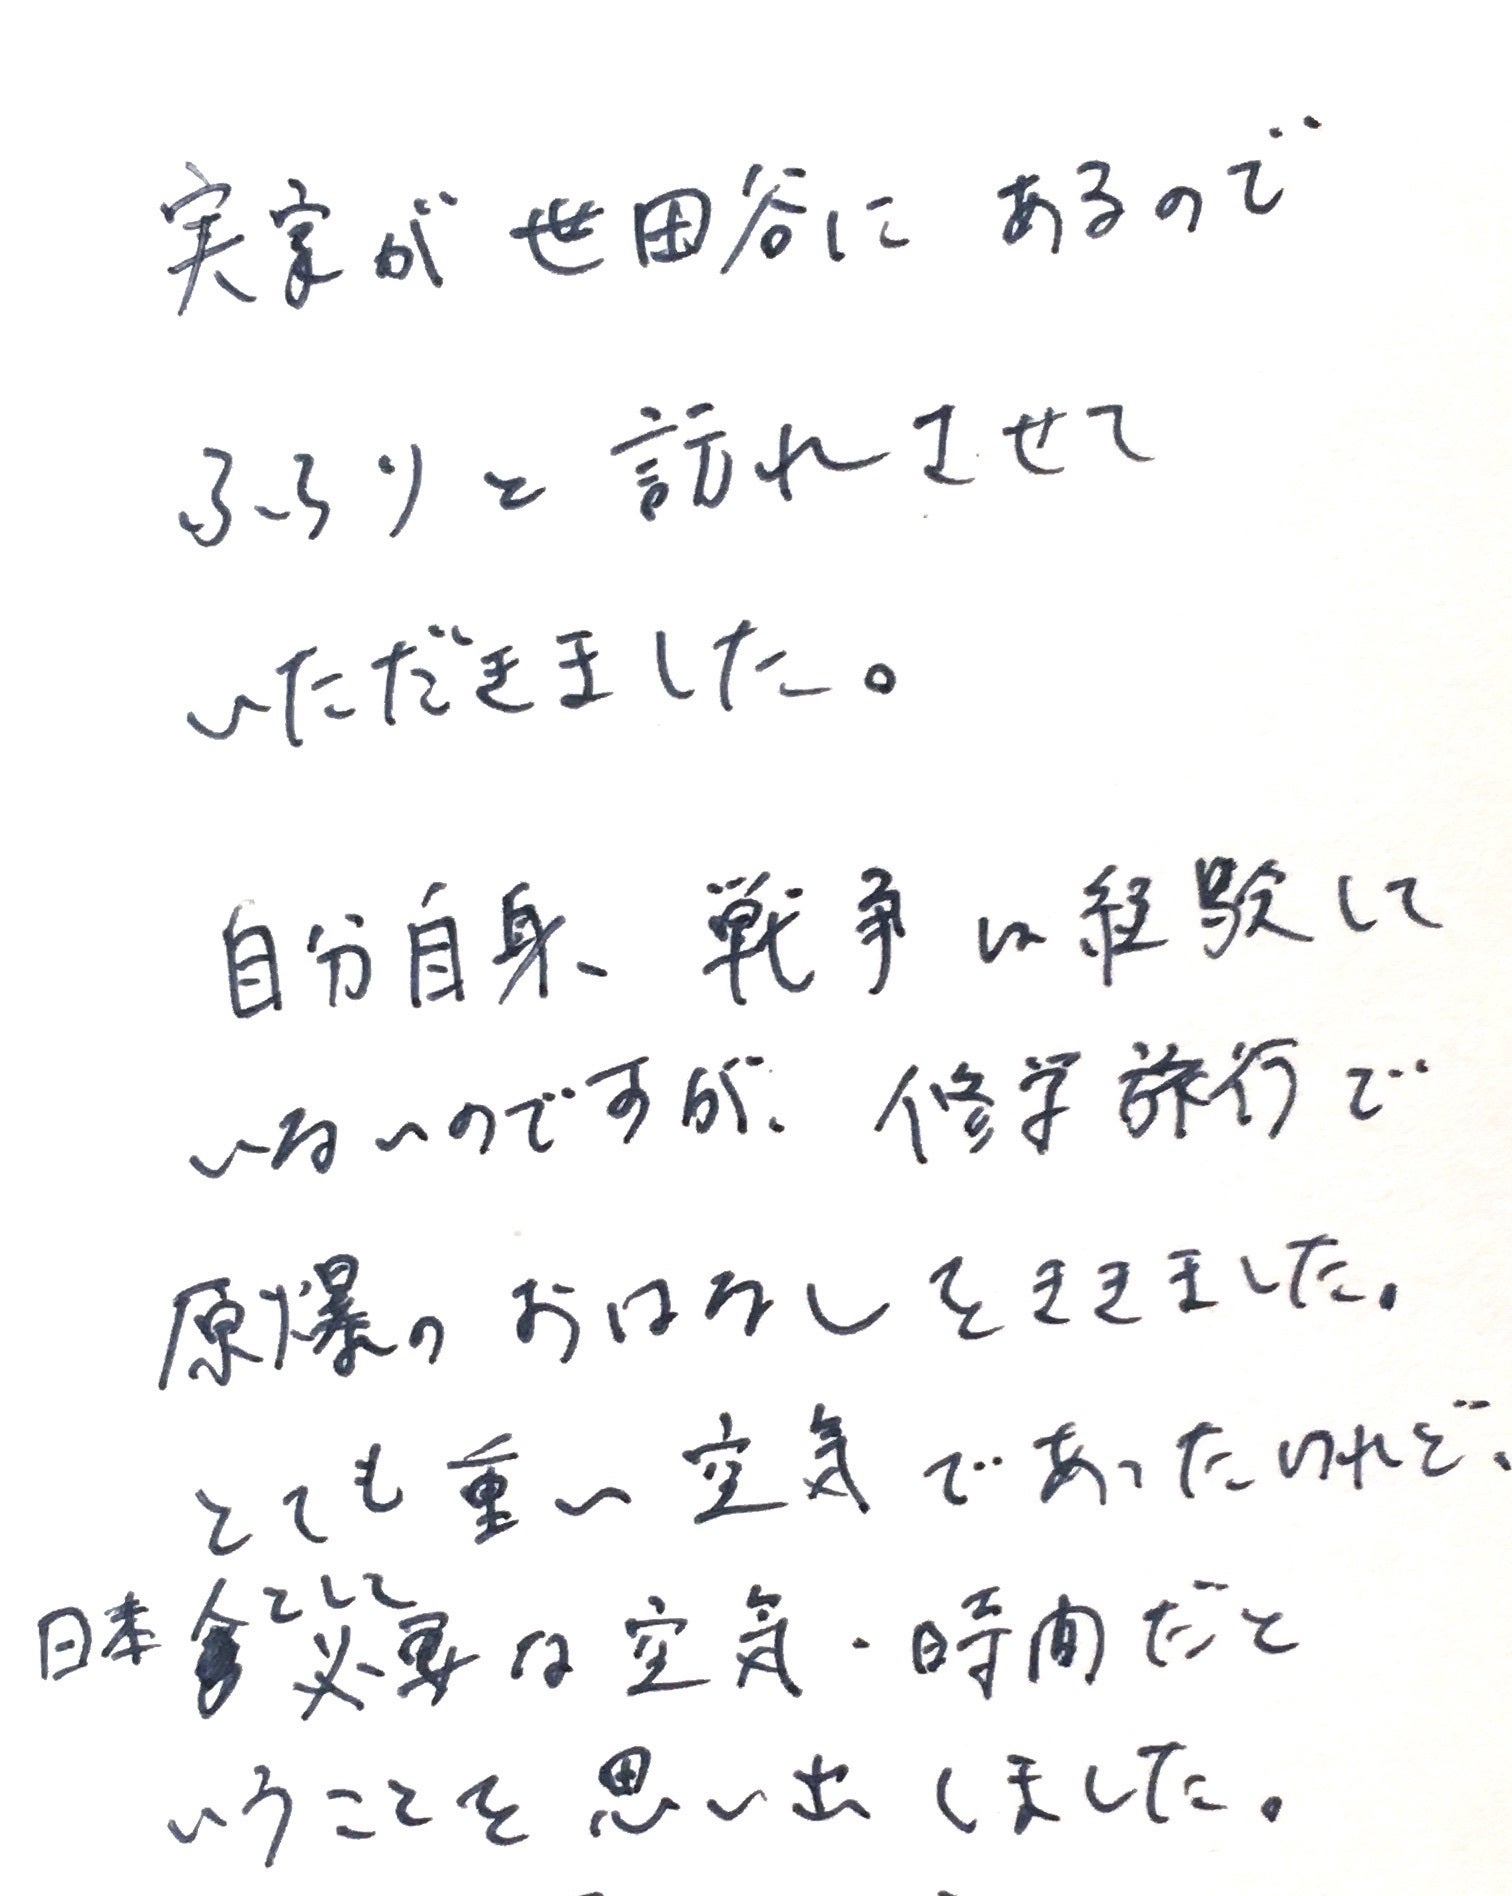 実家が世田谷にあるので
ふらりと訪れさせて
いただきました。
自分自身、戦争は経験して
いないのですが、修学旅行で
原爆のおはなしをききました。
とても重い空気であったけれど、
日本 として必要な空気・時間だと
いうことを思い出しました。